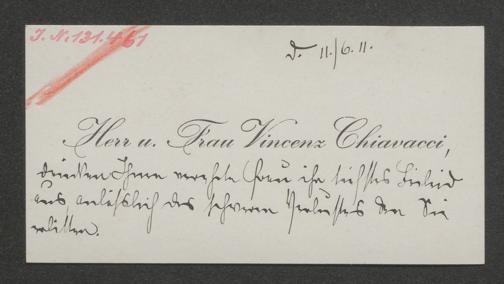 J. N. 131.461
d. 11./6. 11.
Herr u. Frau Vincenz Chiavacci,
drücken Ihnen verehrte Frau ihr tiefstes Beileid
aus anläßlich des schweren Verlustes den Sie
erlitten.